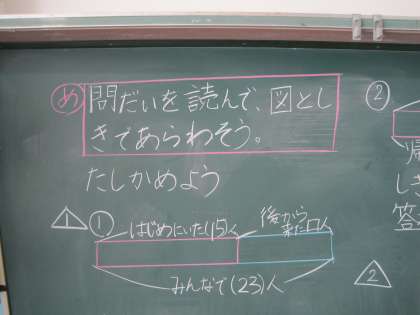 め 問だいを読んで、図とし
きであらわそう。
たしかめよう
1 ① はじめにいた(15)人 後から
来た□人
みんなで(23)人
②
帰
しき
答
2